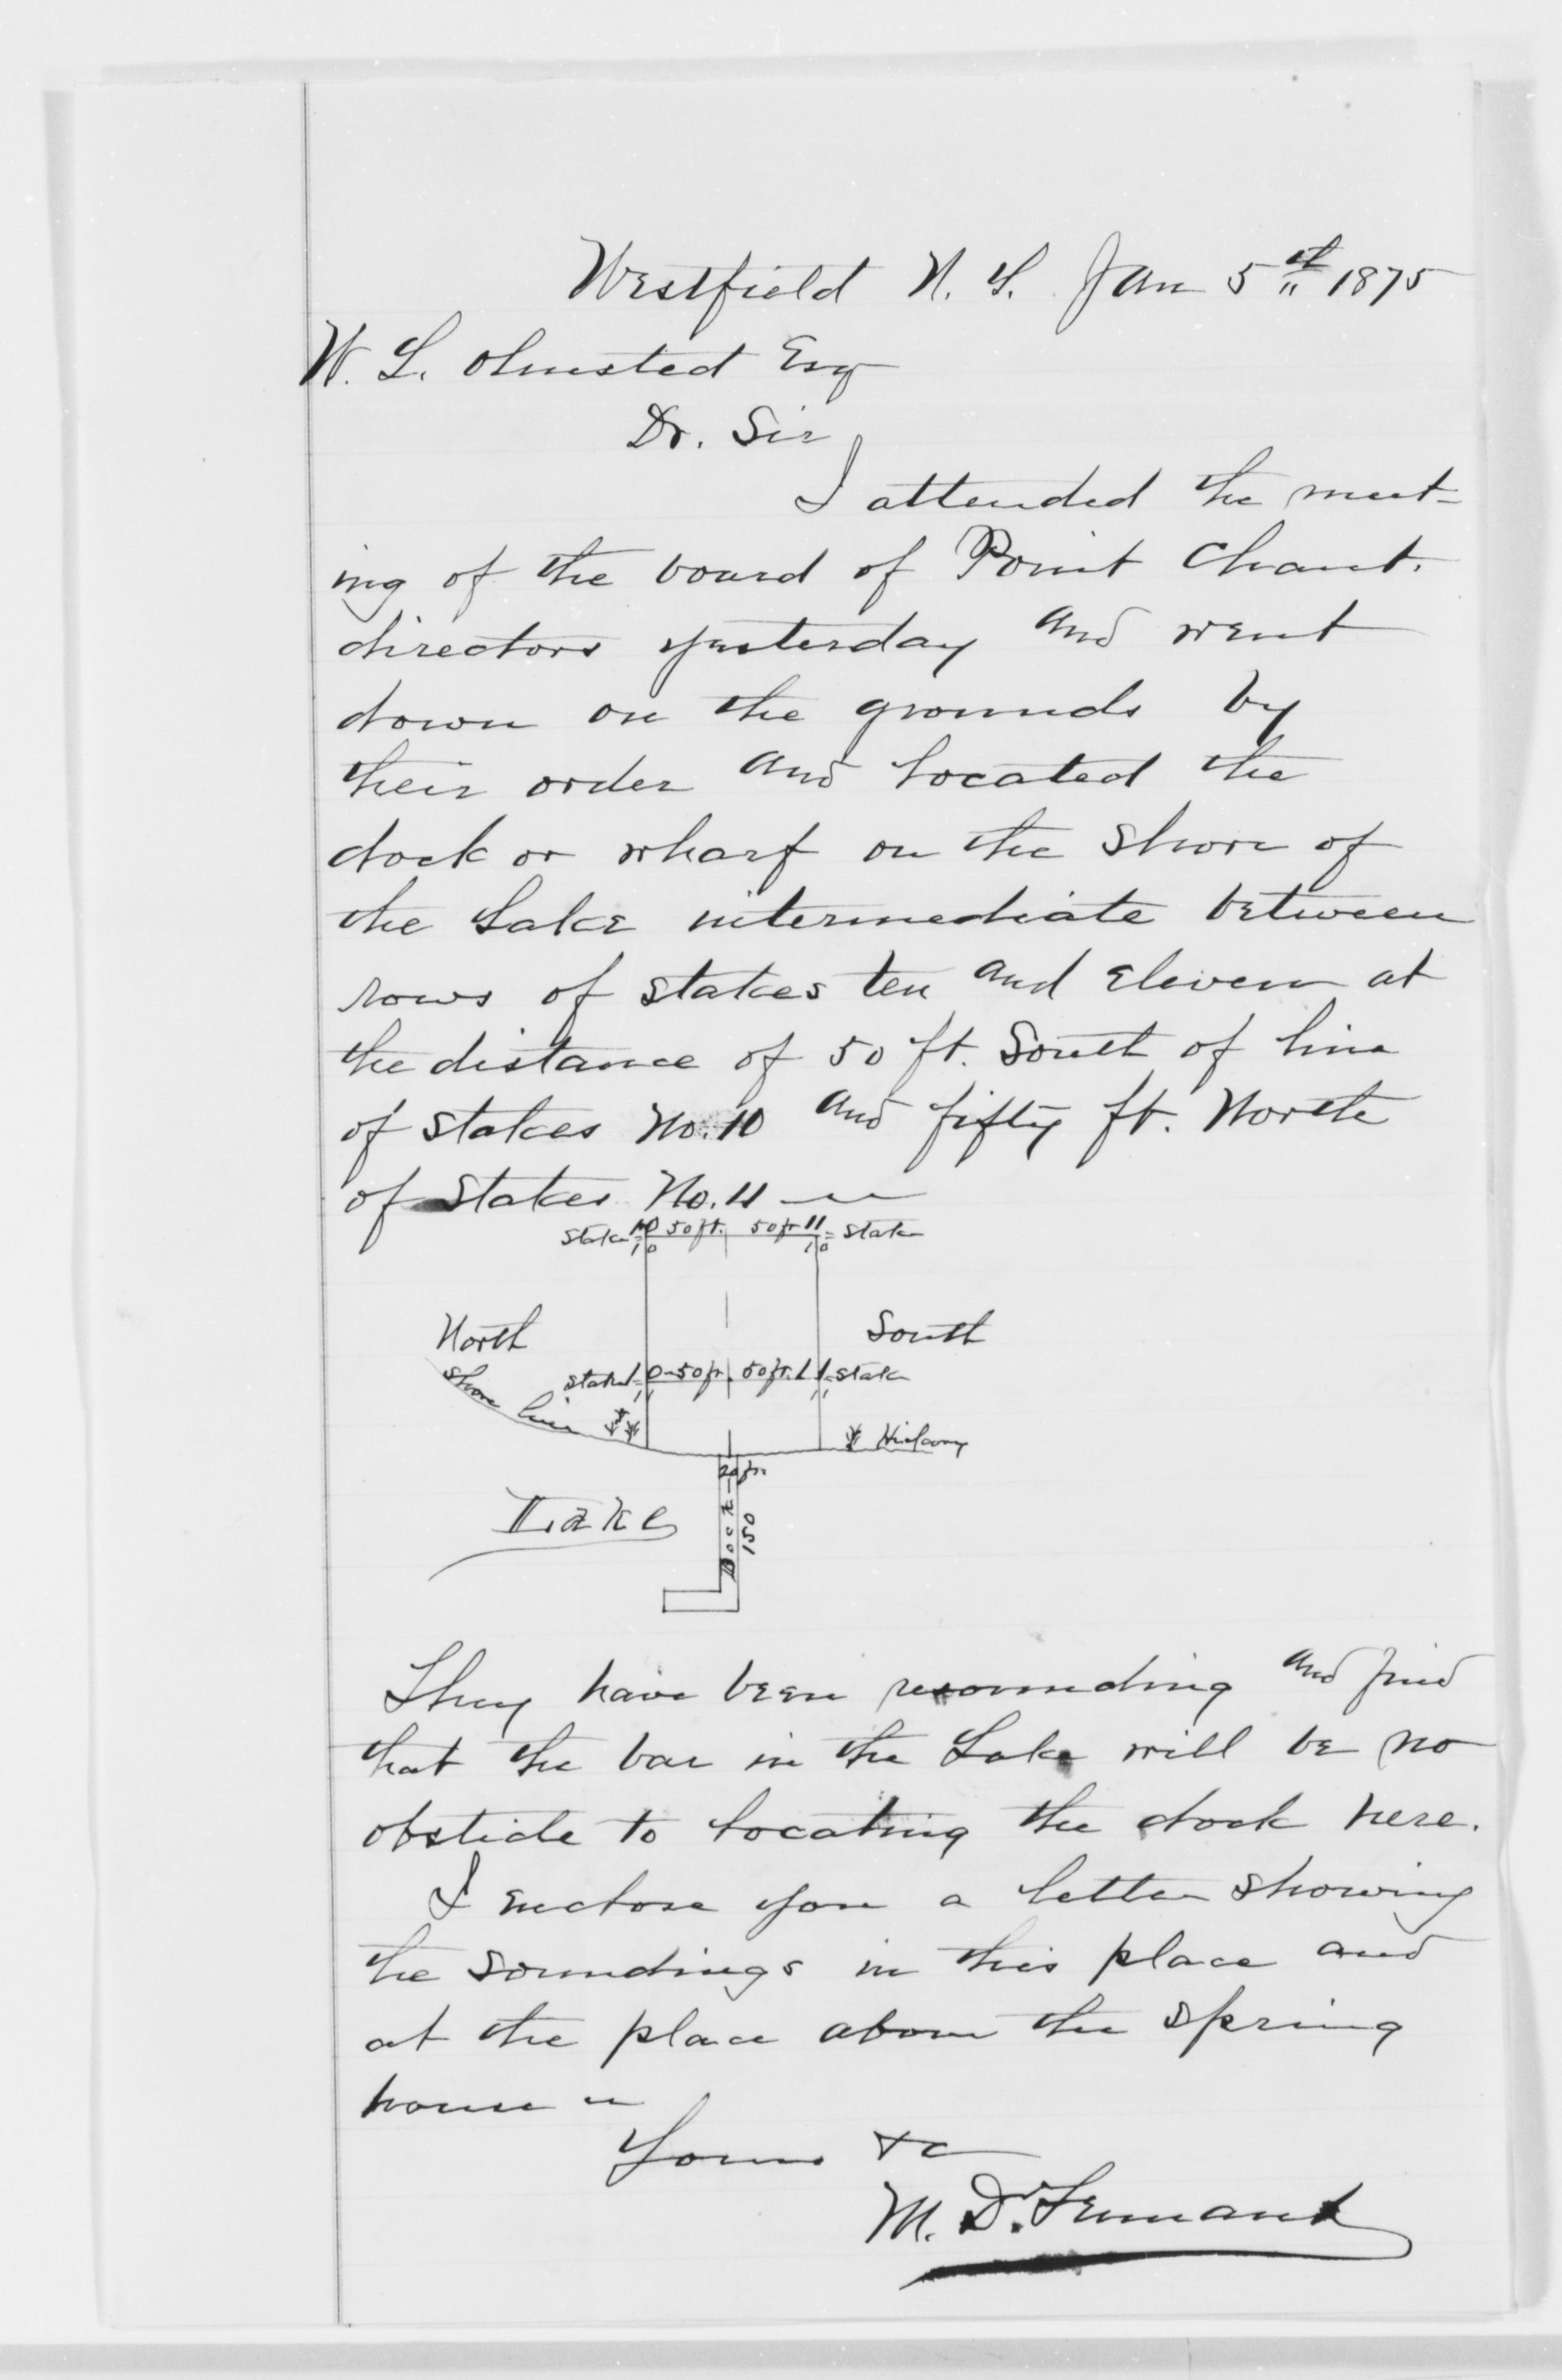 Westfield N. Y. Jan 5th 1875
W. L. Olmsted Esq
Dr. Sir
I attended the meet-
ing of the board of Point Chaut.
directors yesterday and went
down on the grounds by
their order and located the
dock or wharf on the shore of
the Lake intermediate between
rows of stakes ten and eleven at
the distance of 50 ft. South of line
of stakes No. 10 and fifty ft. North
of Stakes No. 11
Stake 10 50 ft. 50 ft 11 = Stake
North South
Stake 10 - 50 ft. 50 ft. 11 = Stake
Shore line
Hickory
20 ft.
Lake
Dock
150
They have been resounding and find
that the bar in the Lake will be no
obsticle to locating the dock here.
I enclose you a letter showing
the soundings in this place and
at the place above the spring
house
Yours &c
M. D. Tennant